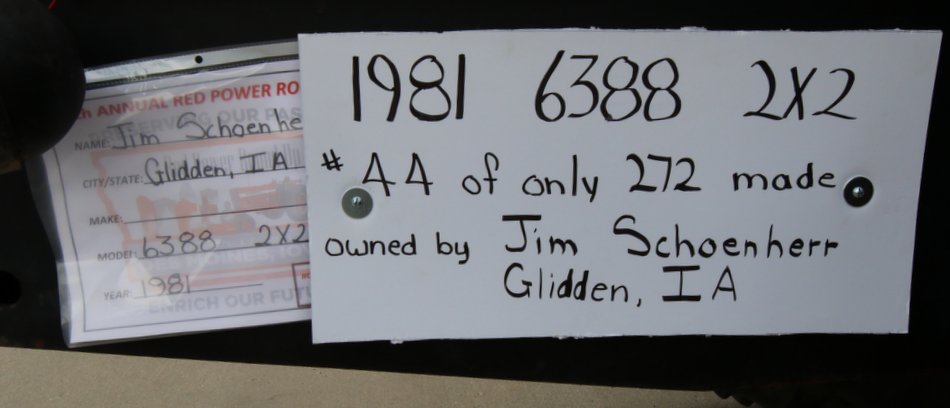 th ANNUAL RED POWER RO
NAME: Jim Schoenhe
CITY/STATE: Glidden, IA
MAKE:
MODEL: 6388 2X2
YEAR: 1981
ENRICH OUR FUTU
1981 6388 2X2
# 44 of only 272 made
owned by Jim Schoenherr
Glidden, IA